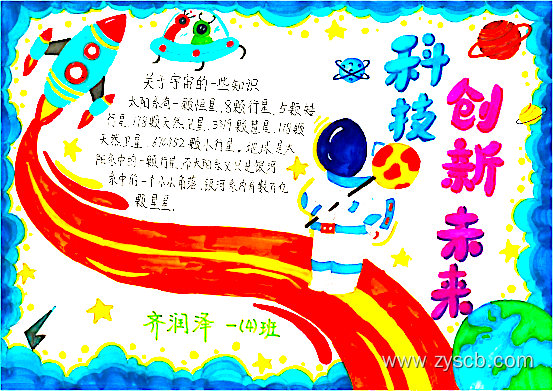 科技
创新未来
关于宇宙的一些知识
太阳系有一颗恒星、8颗行星、5颗矮
行星、178颗天然卫星、3319颗彗星、178颗
天然卫星、814352颗小行星。地球是太
阳系中的一颗行星,而太阳系又只是银河
系中的一个小小角落,银河系内有数不完
颗星星。
齐润泽 一(4)班
www.zyscb.com